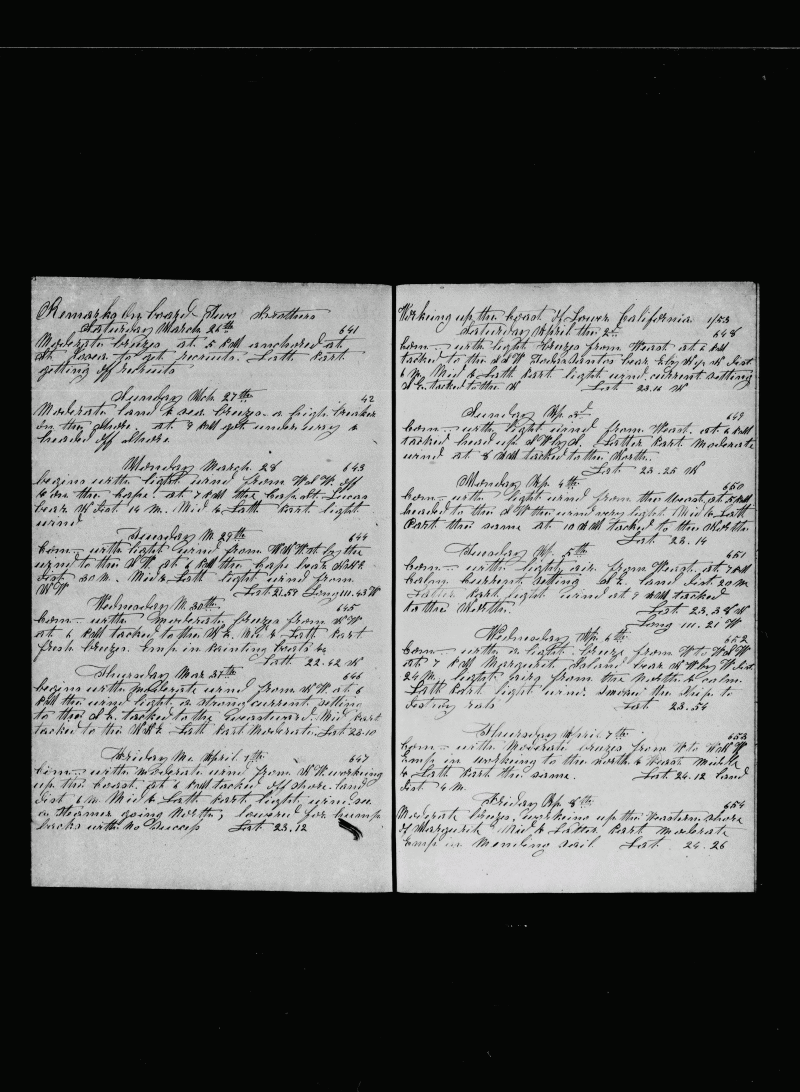 Remarks on board Two Brothers
Saturday March 26th 641
Moderate breezes at 5 PM anchored at
St Josea to get recruits. Latt Part
getting off recruits
Sunday Mch 27th 42
Moderate land & sea breezes a high breaker
on the shore. at 9 PM got under way &
headed off shore
Monday March 28 643
begins with light wind from off
the cape. at 7 PM the cape St Lucas
bear N Dist 14 M. Mid & Latt Part light
wind
Tuesday M 29th 644
Com— with light wind from by the
wind to the at 6 PM the cape bear
Dist 30 M. Mid & Latt light wind from
NW Lat 21.58 Long 111.43 W
Wednesday M 30th 645
Com— with moderate breeze from NW
at 6 PM tacked to the Mid & Latt Part
fresh breezes. Emp in painting boats &c
Latt 22.42 N
Thursday Mar 31th 646
begins with moderate wind from NW at 6
PM the wind light a strong current setting
to the S E. tacked to the Mid Part
tacked to the Latt Part Moderate Lat 23.10
Friday April 1th 647
Com— with moderate wind from NW working
up the coast. at 6 PM tacked off shore. land
Dist 6 M. Mid & Latt Part light wind saw
a steamer going North, lowered for hump
backs with no success Lat 23.12
Working up the Coast Of Lower California 1853
Saturday April the 2d 648
Com— with light breezes from West. at 2 PM
tacked to the S W Todos Santos bear Dist
6 M. Mid & Latt Part light wind. current setting
S E. tacked to the N Lat 23.11 N
Sunday Ap. 3d 649
Com— with light wind from West. at 6 PM
tacked head up Latter Part Moderate
wind at 8 AM tacked to the North.
Lat 23.25 N
Monday Ap 4th 650
Com— with light wind from the West, at 5 PM
headed to the S W the wind very light. Mid & Latt
Part the same at 10 AM tacked to the North
Lat 23.14
Tuesday Ap. 5th 651
Com— with light air from West. at 7 PM
Calm current setting S E. land Dist 20 M
Latter Part light wind at 9 AM tacked
to the North. Lat 23.38 N
Long 111.21 W
Wednesday Ap 6th 652
Com— with a light breeze from W to WNW
at 7 PM Marguerit Island bear NW by W Dist
24 M. light airs from the North & calm.
Latt Part light wind. Smoked the Ship to
destroy rats Lat 23.54
Thursday April 7th 653
Com— with Moderate breezes from W to WNW
Emp in working to the north & West Middle
& Latt Part the same. Lat 24.12 land
Dist 4 M.
Friday Ap 8th 654
Moderate breezes, working up the Western Shore
of Marguerit Mid & Latter Part moderate
Emp in Mending sail Lat 24.26